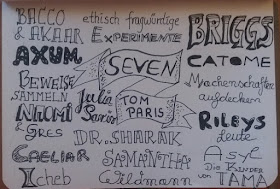 BACCO
& AKAAR
ethisch fragwürdige
EXPERIMENTE
BRIGGS
AXUM
SEVEN
CATOME
BEWEISE
SAMMELN
Julia
TOM
PARIS
Machenschaften
aufdecken
NAOMI
& Gres
RILEYS
Leute
DR. SHARAK
CAELIAR
SAMANTHA
Wildmann
Asyl
Die KINDER
von TAMA
Icheb